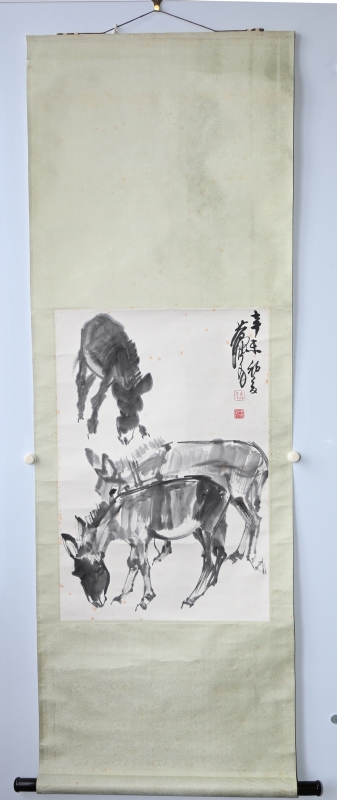 辛未初夏
黄胄